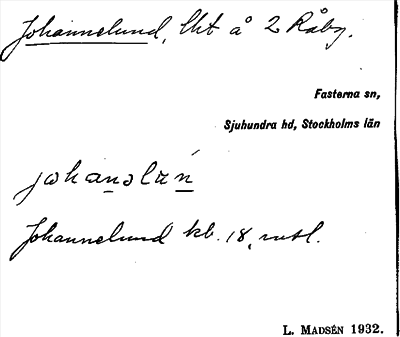 Johannelund, lht å 2 Råby.
Fasterna sn,
Sjuhundra hd, Stockholms län
johanəlun
Johannelund kb. 18, mtl.
L. MADSÉN 1932.